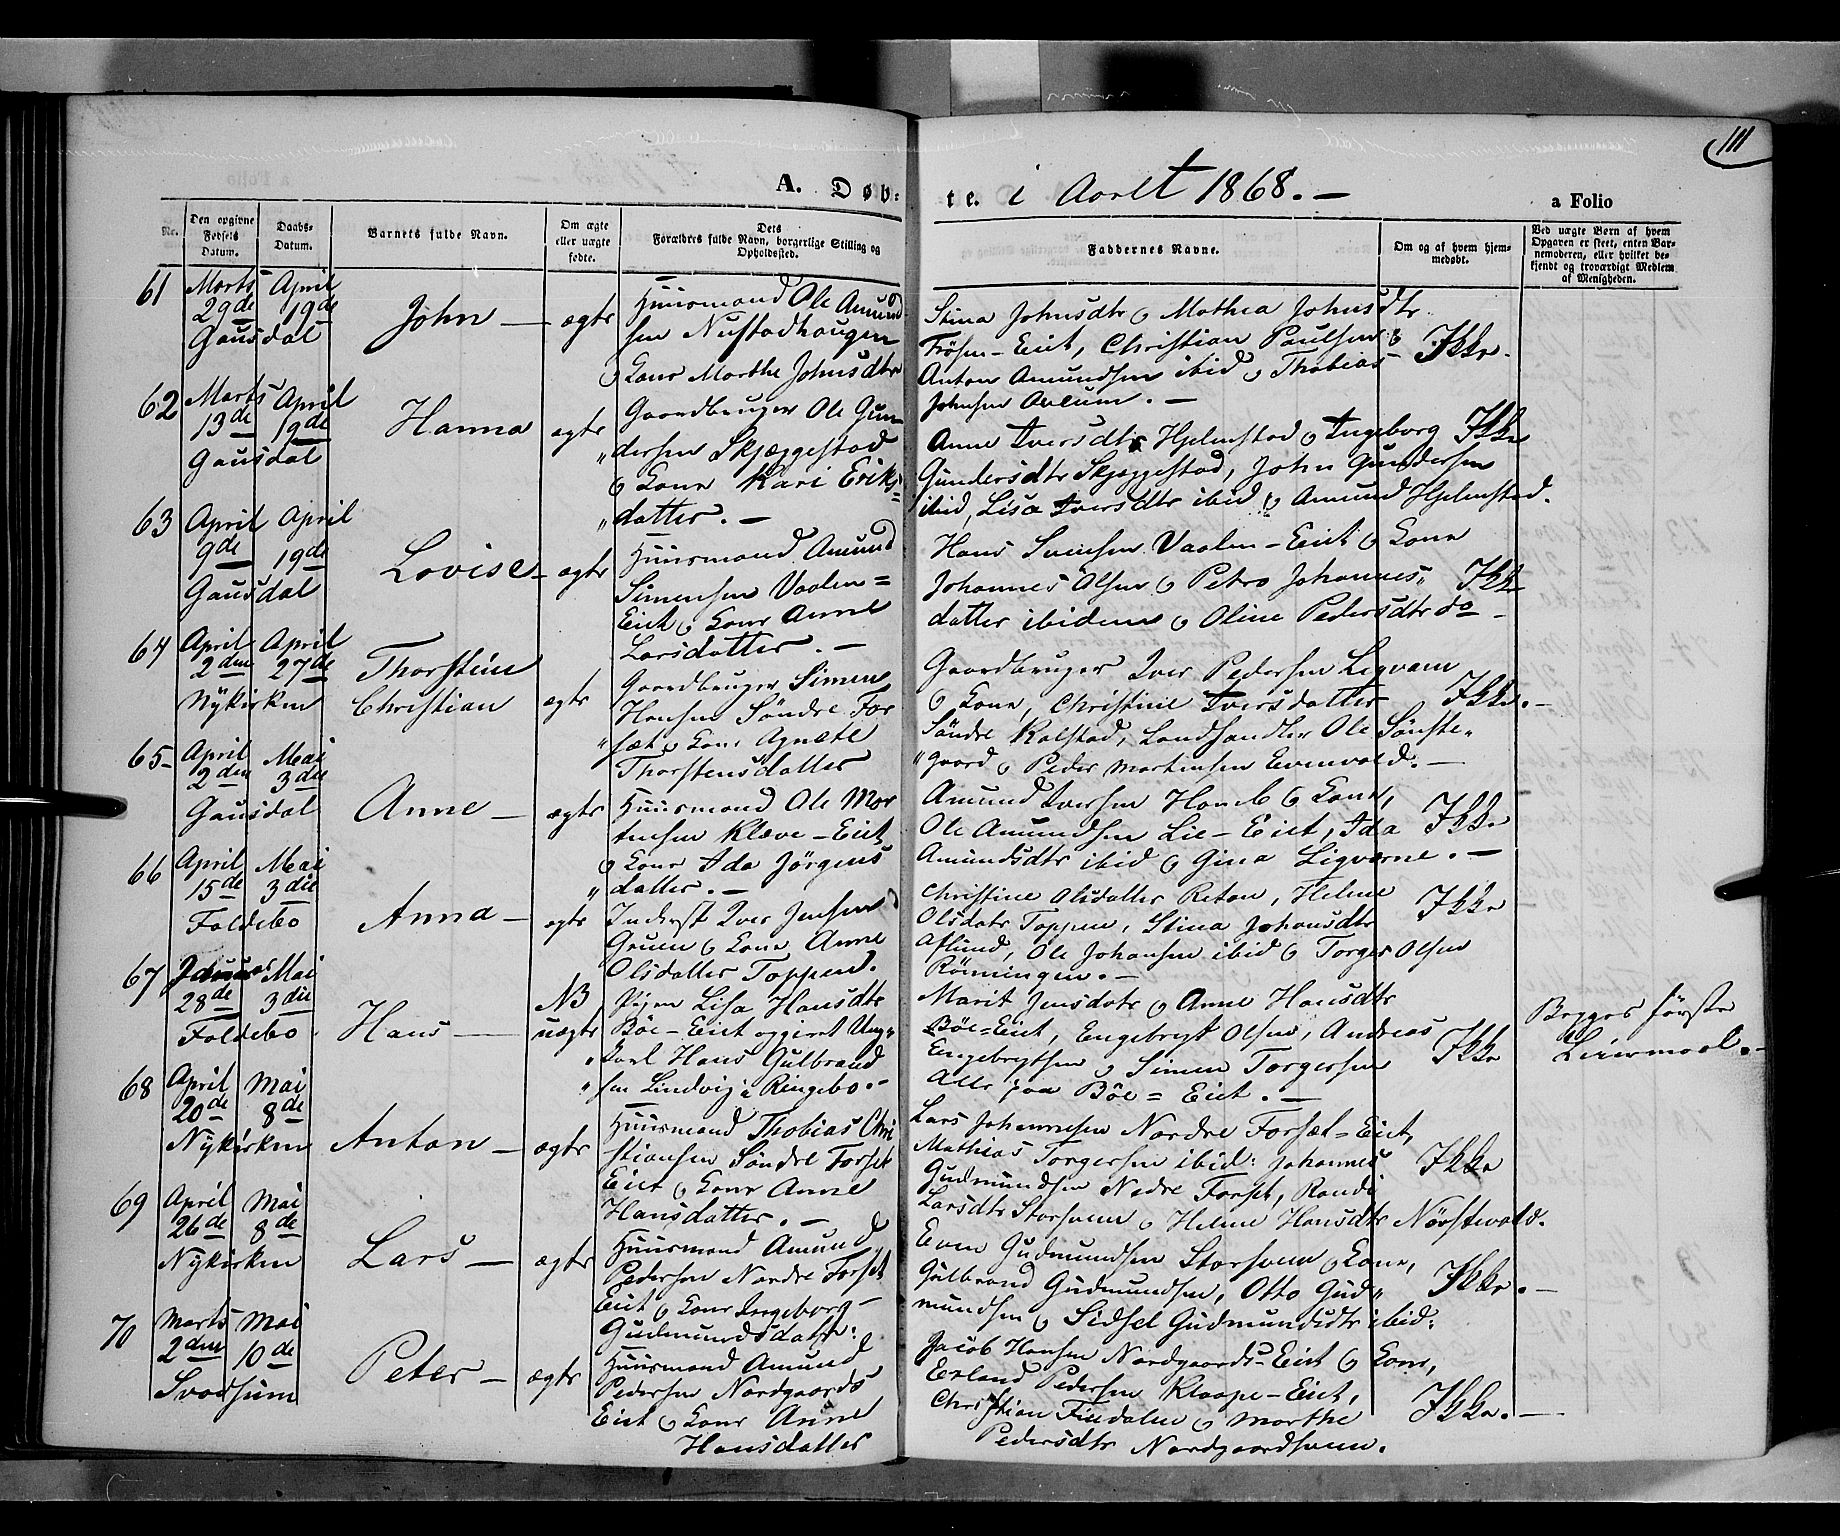 111
A. Døb:
te. i Aaret 1868. —
a Folio
Nr.
Den opgivne Fødsels Datum.
Daabs-Datum.
Barnets fulde Navn.
Om ægte eller uægte fødte.
Dets Forældres fulde Navn, borgerlige Stilling og Opholdsted.
Faddernes Navne.
Om og af hvem hjemmedøbt.
Ved uægte Børn af hvem Opgaven er skeet, enten Barnemoderen, eller hvilket bekjendt og troværdigt Medlem af Menigheden.
61
Marts April
29de 19de
Gausdal
John —
ægte
Huusmand Ole Amund
sen Nustadhaugen
o Kone Marthe Johnsdtr
Stina Johnsdtr o Mathea Johnsdtr
Frösen-Eiet, Christian Paulsen o
Anton Amundsen ibid o Thobias
Johnsen
Ikke.
62
Marts April
13de 19de
Gausdal
Hanna
ægte
Gaardbruger Ole Gun-
dersen Skjæggestad
o Kone Kari Eriks=
datter. —
Anne Iversdtr Hjelmstad o Ingeborg
Gundersdtr Skjæggestad, John Gundersen
ibid, Lisa Iversdtr ibid o Amund Hjelmstad.
Ikke
63
April April
9de 19de
Gausdal
Lovise —
ægte
Huusmand Amund
Simensen Vaalen=
Eiet o Kone Anne
Larsdatter. —
Hans Svensen Vaalen-Eiet o Kone
Johannes Olsen o Petra Johannes"
datter ibidem o Oline Pedersdtr do —
Ikke
64
April April
2den 27de
Nykirken
Thorstein
Christian
ægte
Gaardbruger Simen
Hansen Söndre For
sæt o Kone Agnete
Thorstensdatter
Gaardbruger Iver Pedersen Ligvam
o Kone, Christine Iversdatter
Söndre Kalstad, Landhandler Ole Sönste"
gaard o Peder Martinsen Evenvold. —
Ikke. —
65
April Mai
2den 3die
Gausdal
Anne —
ægte
Huusmand Ole Mor
tensen Kleve-Eiet
o Kone Ida Jörgens
datter. —
Amund Iversen Hom b o Kone,
Ole Amundsen Lie-Eiet, Ida
Amundsdtr ibid o Gina Ligværne. —
Ikke
66
April Mai
15de 3die
Foldebo
Anna —
ægte
Inderst Iver Jensen
Gruen o Kone Anne
Olsdatter Toppen.
Christine Olsdatter Retan, Helene
Olsdatr Toppen, Stina Johansdtr
Aflund, Ole Johansen ibid o Torger Olsen
Rönningen. —
Ikke
67
Januar Mai
28de 3die
Foldebo.
Hans —
NB
uægte
Pigen Lisa Hansdtr
Böe-Eiet opgivet Ung"
karl Hans Gulbrand
sen Lindvig i Ringebo. —
Marit Jensdatr o Anne Hansdtr
Böe=Eiet, Engebregt Olsen, Andreas
Engebregtsen o Simen Torgersen
Alle paa Böe=Eiet. —
Ikke
Begges første
Leiermaal. —
68
April Mai
20de 8de
Nykirken
Anton —
ægte
Huusmand Thobias Chri
stiansen Söndre Forset
Eiet o Kone Anne
Hansdatter. —
Lars Johannesen Nordre Forsæt=Eiet,
Mathias Torgersen ibid: Johannes
Gudmundsen Nedre Forset, Randi
Larsdtr Storsveen o Helene Hansdtr Nörstevold.
Ikke
69
April Mai
26de 8de
Nykirken
Lars —
ægte
Huusmand Amund
Pedersen Nordre Forset
Eiet o Kone Ingeborg
Gudmundsdatr:
Even Gudmundsen Storsveen o Kone,
Gulbrand Gudmundsen, Otto Gud"
mundsen o Sidsel Gudmundsdtr ibid:
Ikke. —
70
Marts Mai
2den 10de
Svadsum
Peter —
ægte
Huusmand Amund
Pedersen Nordgaards
Eiet o Kone Anne
Hansdatter
Jacob Hansen Nordgaards-Eiet o Kone,
Erland Pedersen Klaape-Eiet,
Christian Findalen o Marthe
Pedersdtr Nordgaardsveen.
Ikke. —